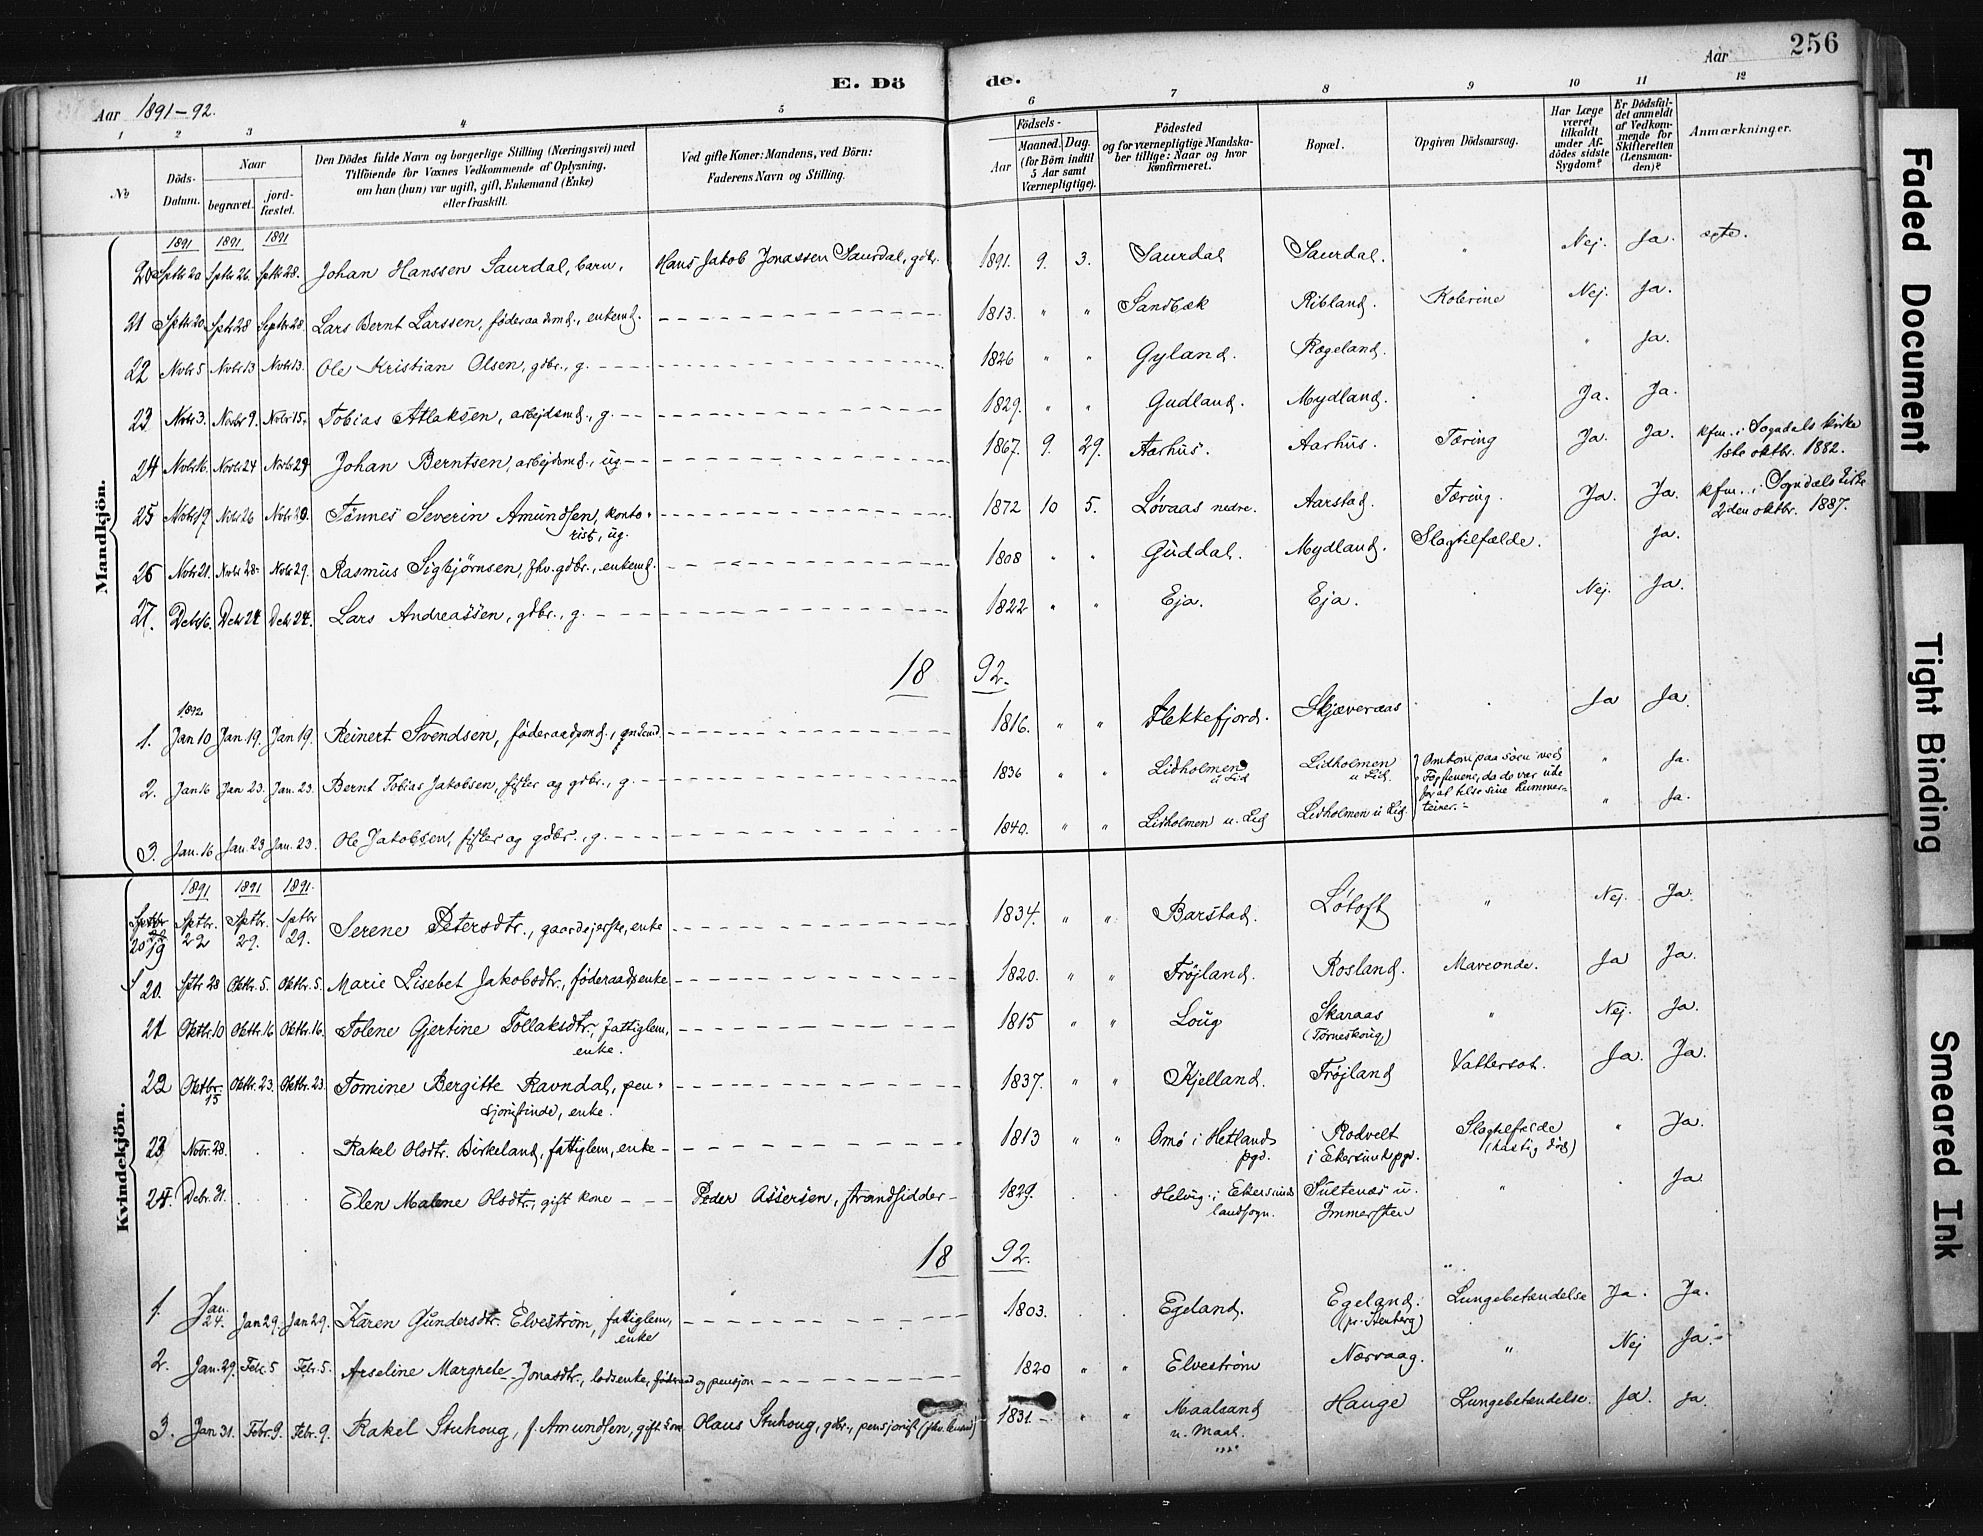 256
E. Dö de.
Aar 1891–92. Aar
1 2 3 4 5 6 7 8 9 10 11 12
№
Döds-Datum.
Naar
begravet.
jord-fæstet.
Den Dödes fulde Navn og borgerlige Stilling (Næringsvei) med
Tilföiende for Voxnes Vedkommende af Oplysning,
om han (hun) var ugift, gift, Enkemand (Enke)
eller fraskilt.
Ved gifte Koner: Mandens, ved Börn:
Faderens Navn og Stilling.
Födsels-
Aar
Maaned. Dag.
(for Börn indtil
5 Aar samt
Værnepligtige).
Födested
og for værnepligtige Mandska-
ber tillige: Naar og hvor
konfirmeret.
Bopæl.
Opgiven Dödsaarsag.
Har Læge
været
tilkaldt
under Af-
dödes sidste
Sygdom?
Er Dödsfal-
det anmeldt
af Vedkom-
mende for
Skifteretten
(Lensman-
den)?
Anmærkninger.
Mandkjön.
1891 1891 1891
20 Sptbr 20 Sptbr 26. Sptbr 28. Johan Hanssen Saurdal, barn. Hans Jakob Jonassen Saurdal, gdbr. 1891. 9. 3. Saurdal Saurdal. " Nej. Ja. ægte.
21 Sptbr 20 Sptbr 28 Septbr 28. Lars Bernt Larssen, föderaadsmd., enkemd. 1813. " " Sandbæk Ribland. Kolerine Nej. Ja.
22 Novbr 5 Novbr 13 Novbr 13. Ole Kristian Olsen, gdbr., g. 1826 " " Gyland. Rægeland. " Ja.
23 Novbr 3. Novbr 9. Novbr 15. Tobias Atlaksen, arbejdsmd., g. 1829. " " Gudland. Mydland. Ja. Ja.
24 Novbr 16. Novbr 24 Novbr 29 Johan Berntsen, arbejdsmd., ug. 1867. 9. 29. Aarhus. Aarhus. Tæring Ja. Ja. kfm. i Sogndals kirke
1ste oktbr. 1882.
25 Novbr 19 Novbr 26 Novbr 29. Tönnes Severin Amundsen, konto-
rist, ug. 1872 10 5. Løvaas nedre. Aarstad. Tæring. Ja. Ja. kfm. i Sogndals kirke
2den oktbr. 1887.
26 Novbr 21. Novbr 28. Novbr 29. Rasmus Sigbjörnsen, fhv. gdbr., enkemd. 1808 " " Guddal. Mydland. Slagtilfælde. Ja.
27. Debr 16. Debr 24 Debr 24. Lars Andreassen, gdbr., g. 1822 " " Eja. Eja. Nej. Ja.
18 92.
1892
1. Jan 10 Jan 19. Jan 19. Reinert Svendsen, föderaadsmd., 1816. " " Flekkefjord. Skjæveraas Ja Ja.
2. Jan 16 Jan 23. Jan. 23. Bernt Tobias Jakobsen, fisker og gdbr., g. 1836 " " Lidholmen
u. Lid Lidholmen
u. Lid. Omkom paa söen ved
Fogstenene, da de var ute
for at tilse sine hummer-
teiner. " Ja.
3. Jan. 16 Jan. 23 Jan. 23. Ole Jakobsen, fisker og gdbr., g. 1840. " " Lidholmen u. Lid Lidholmen u. Lid. " Ja.
Kvindekjön.
1891 1891 1891.
19 Sptbr. 22 Sptbr. 29. Sptbr 29. Serene Petersdtr., enke 1834. " " Barstad. Løtoft " Nej. Ja.
20. Sptbr 28 Oktbr. 5. Oktbr. 5. Marie Lisebet Jakobsdtr., föderaadsenke 1820. " " Fröjland. Rosland. Mavconde. Ja Ja.
21 Oktbr. 10 Oktbr. 16 Oktbr. 16. Tolene Gjertine Tollaksdtr., fattiglem,
enke. 1815 " " Loug Skaraas
(Torneskoug) " Nej. Ja.
22 Oktbr. 15 Oktbr. 23. Oktbr. 23. Tomine Bergitte Ravndal, pen-
sjonistinde, enke. 1837. " " Kjelland. Fröjland Vattersot. Ja. Ja.
23 Nobr. 28. Rakel Olsdtr. Birkeland, fattiglem, enke 1813 " " Omö i Hetlands
pgd. Rodvelt
i Ekersunds pgd. Slagtilfælde
(hastig död) " Ja.
24. Debr. 31. Elen Malene Olsdtr., gift kone Peder Assersen, strandsidder 1829. Helvig i Ekersunds
landsogn. Sultenæs u.
Immersten " Ja
18 92.
1. Jan. 24. Jan 29. Jan 29. Karen Gundersdtr. Elveström, fattiglem,
enke 1803. Egeland. Egeland.
(p. Stenberg) Lungebetændelse Ja. Ja.
2. Jan. 29. Febr. 5 Febr. 5. Arseline Margrete Jonasdtr., lodsenke, föderaad og pensjon 1820 " " Elveström Nærvaag. " Nej Ja.
3. Jan 31. Febr. 9. Febr. 9. Rakel Stuhoug, f. Amundsen, gift kone Olaus Stuhoug, gdbr., pensjonist (fhv. lensmd) 1831. " " Maalsand
u. Maal. Hauge Lungebetændelse. Ja. Ja.
Faded Document
Tight Binding
Smeared Ink